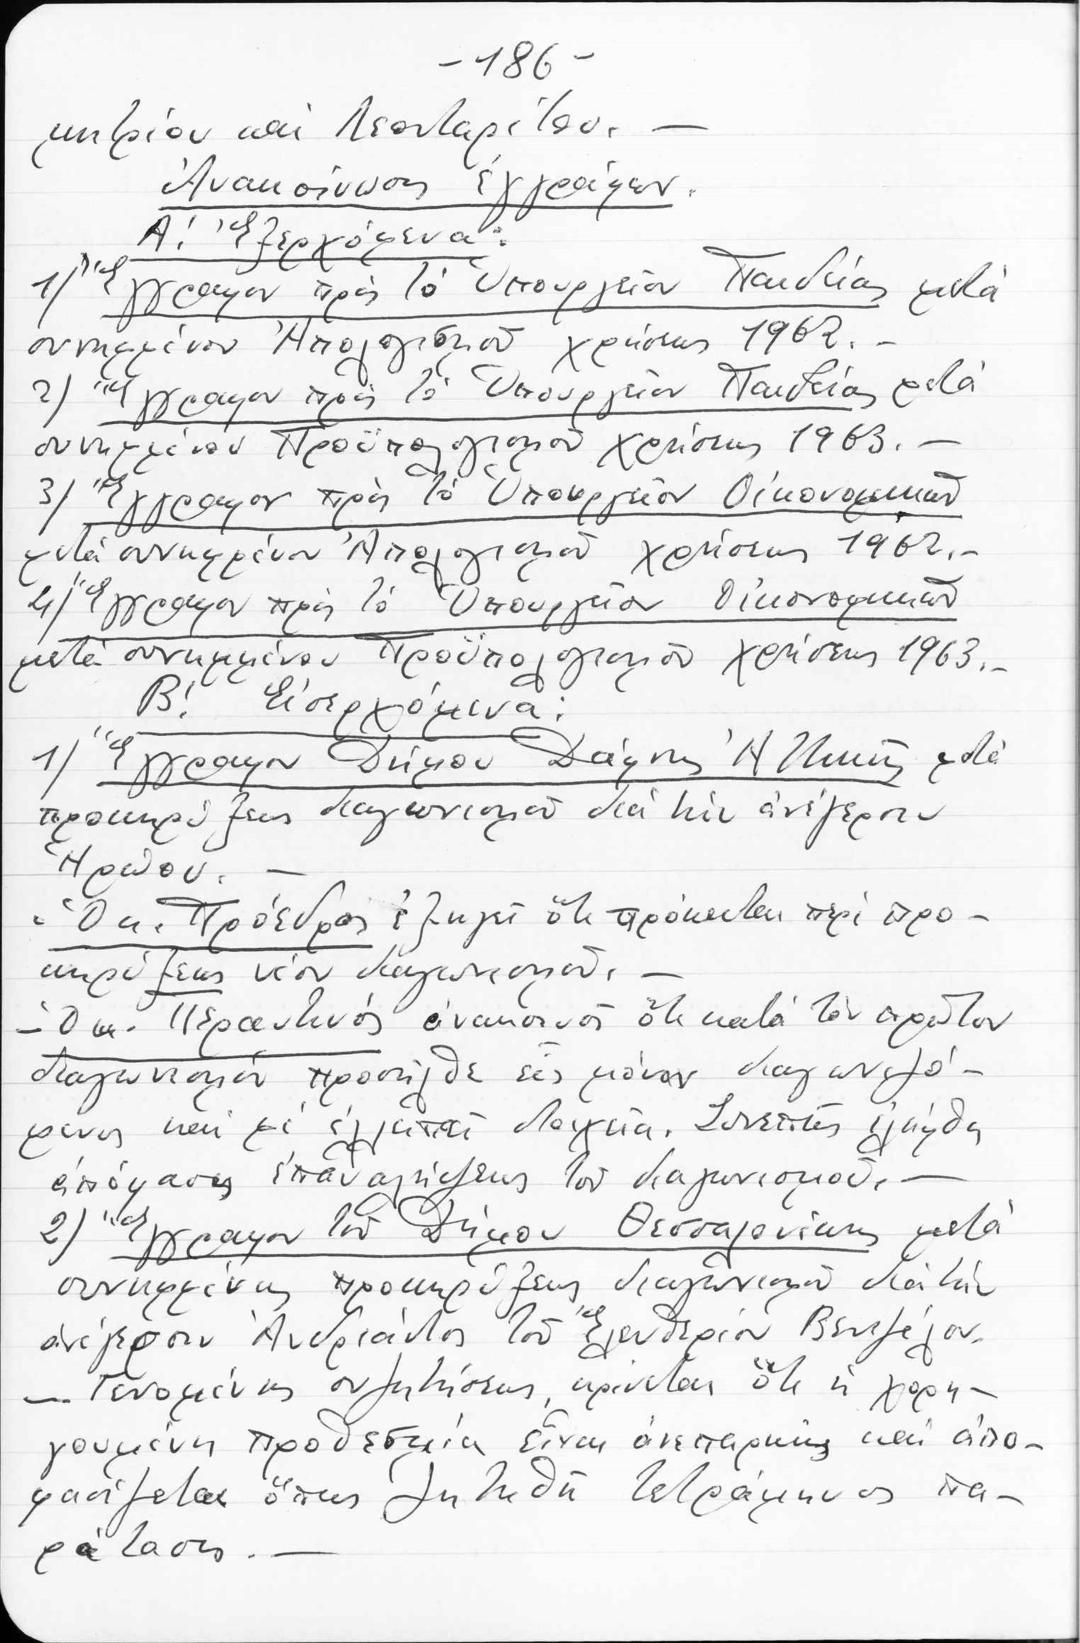 -186-
μητρίου καί Λεονταρίτου. —
Ἀνακοίνωσις ἐγγράφων.
Α! Ἐξερχόμενα:
1) Ἔγγραφον πρός τό Ὑπουργεῖον Παιδείας μετά
συνημμένου Ἀπολογισμοῦ χρήσεως 1962. -
2) Ἔγγραφον πρός τό Ὑπουργεῖον Παιδείας μετά
συνημμένου Προϋπολογισμοῦ χρήσεως 1963. —
3) Ἔγγραφον πρός τό Ὑπουργεῖον Οἰκονομικῶν
μετά συνημμένου Ἀπολογισμοῦ χρήσεως 1962. -
4) Ἔγγραφον πρός τό Ὑπουργεῖον Οἰκονομικῶν
μετά συνημμένου Προϋπολογισμοῦ χρήσεως 1963. -
Β! Εἰσερχόμενα:
1) Ἔγγραφον Δήμου Δάφνης Ἀττικῆς μετά
προκηρύξεως διαγωνισμοῦ διά τήν ἀνέγερσιν
Ἡρώου. —
- Ὁ κ. Πρόεδρος ἐξηγεῖ ὅτι πρόκειται περί προ-
κηρύξεως νέου διαγωνισμοῦ. —
- Ὁ κ. Περαντινός ἀνακοινοῖ ὅτι κατά τόν πρῶτον
διαγωνισμόν προσῆλθε εἷς μόνον διαγωνιζό-
μενος καί μέ ἐλλειπῆ στοιχεῖα. Συνεπῶς ἐλήφθη
ἀπόφασις ἐπαναλήψεως τοῦ διαγωνισμοῦ. —
2) Ἔγγραφον τοῦ Δήμου Θεσσαλονίκης μετά
συνημμένης προκηρύξεως διαγωνισμοῦ διά τήν
ἀνέγερσιν Ἀνδριάντος τοῦ Ἐλευθερίου Βενιζέλου.
— Γενομένης συζητήσεως, κρίνεται ὅτι ἡ χορη-
γουμένη προθεσμία εἶναι ἀνεπαρκής καί ἀπο-
φασίζεται ὅπως ζητηθῆ τετράμηνος πα-
ράτασις. —